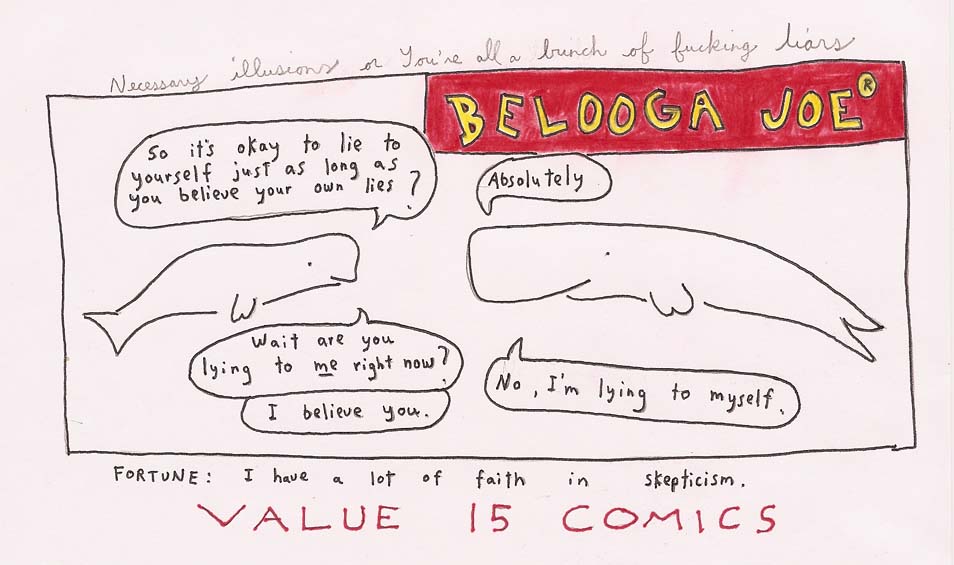 Necessary illusions or You're all a bunch of fucking liars
BELOOGA JOE®
So it's okay to lie to
yourself just as long as
you believe your own lies?
Absolutely
Wait are you
lying to me right now?
No, I'm lying to myself.
I believe you.
FORTUNE: I have a lot of faith in skepticism.
VALUE 15 COMICS